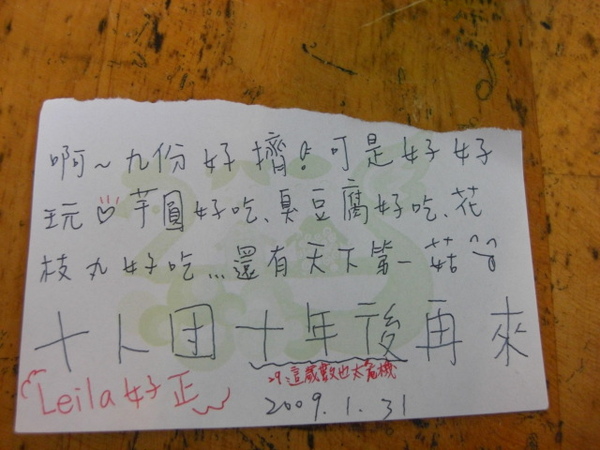 啊~九份好擠!可是好好
玩♡芋圓好吃、臭豆腐好吃、花
枝丸好吃...還有天下第一菇
十人团十年後再來
29這歲數也太危機
Leila好正
2009.1.31